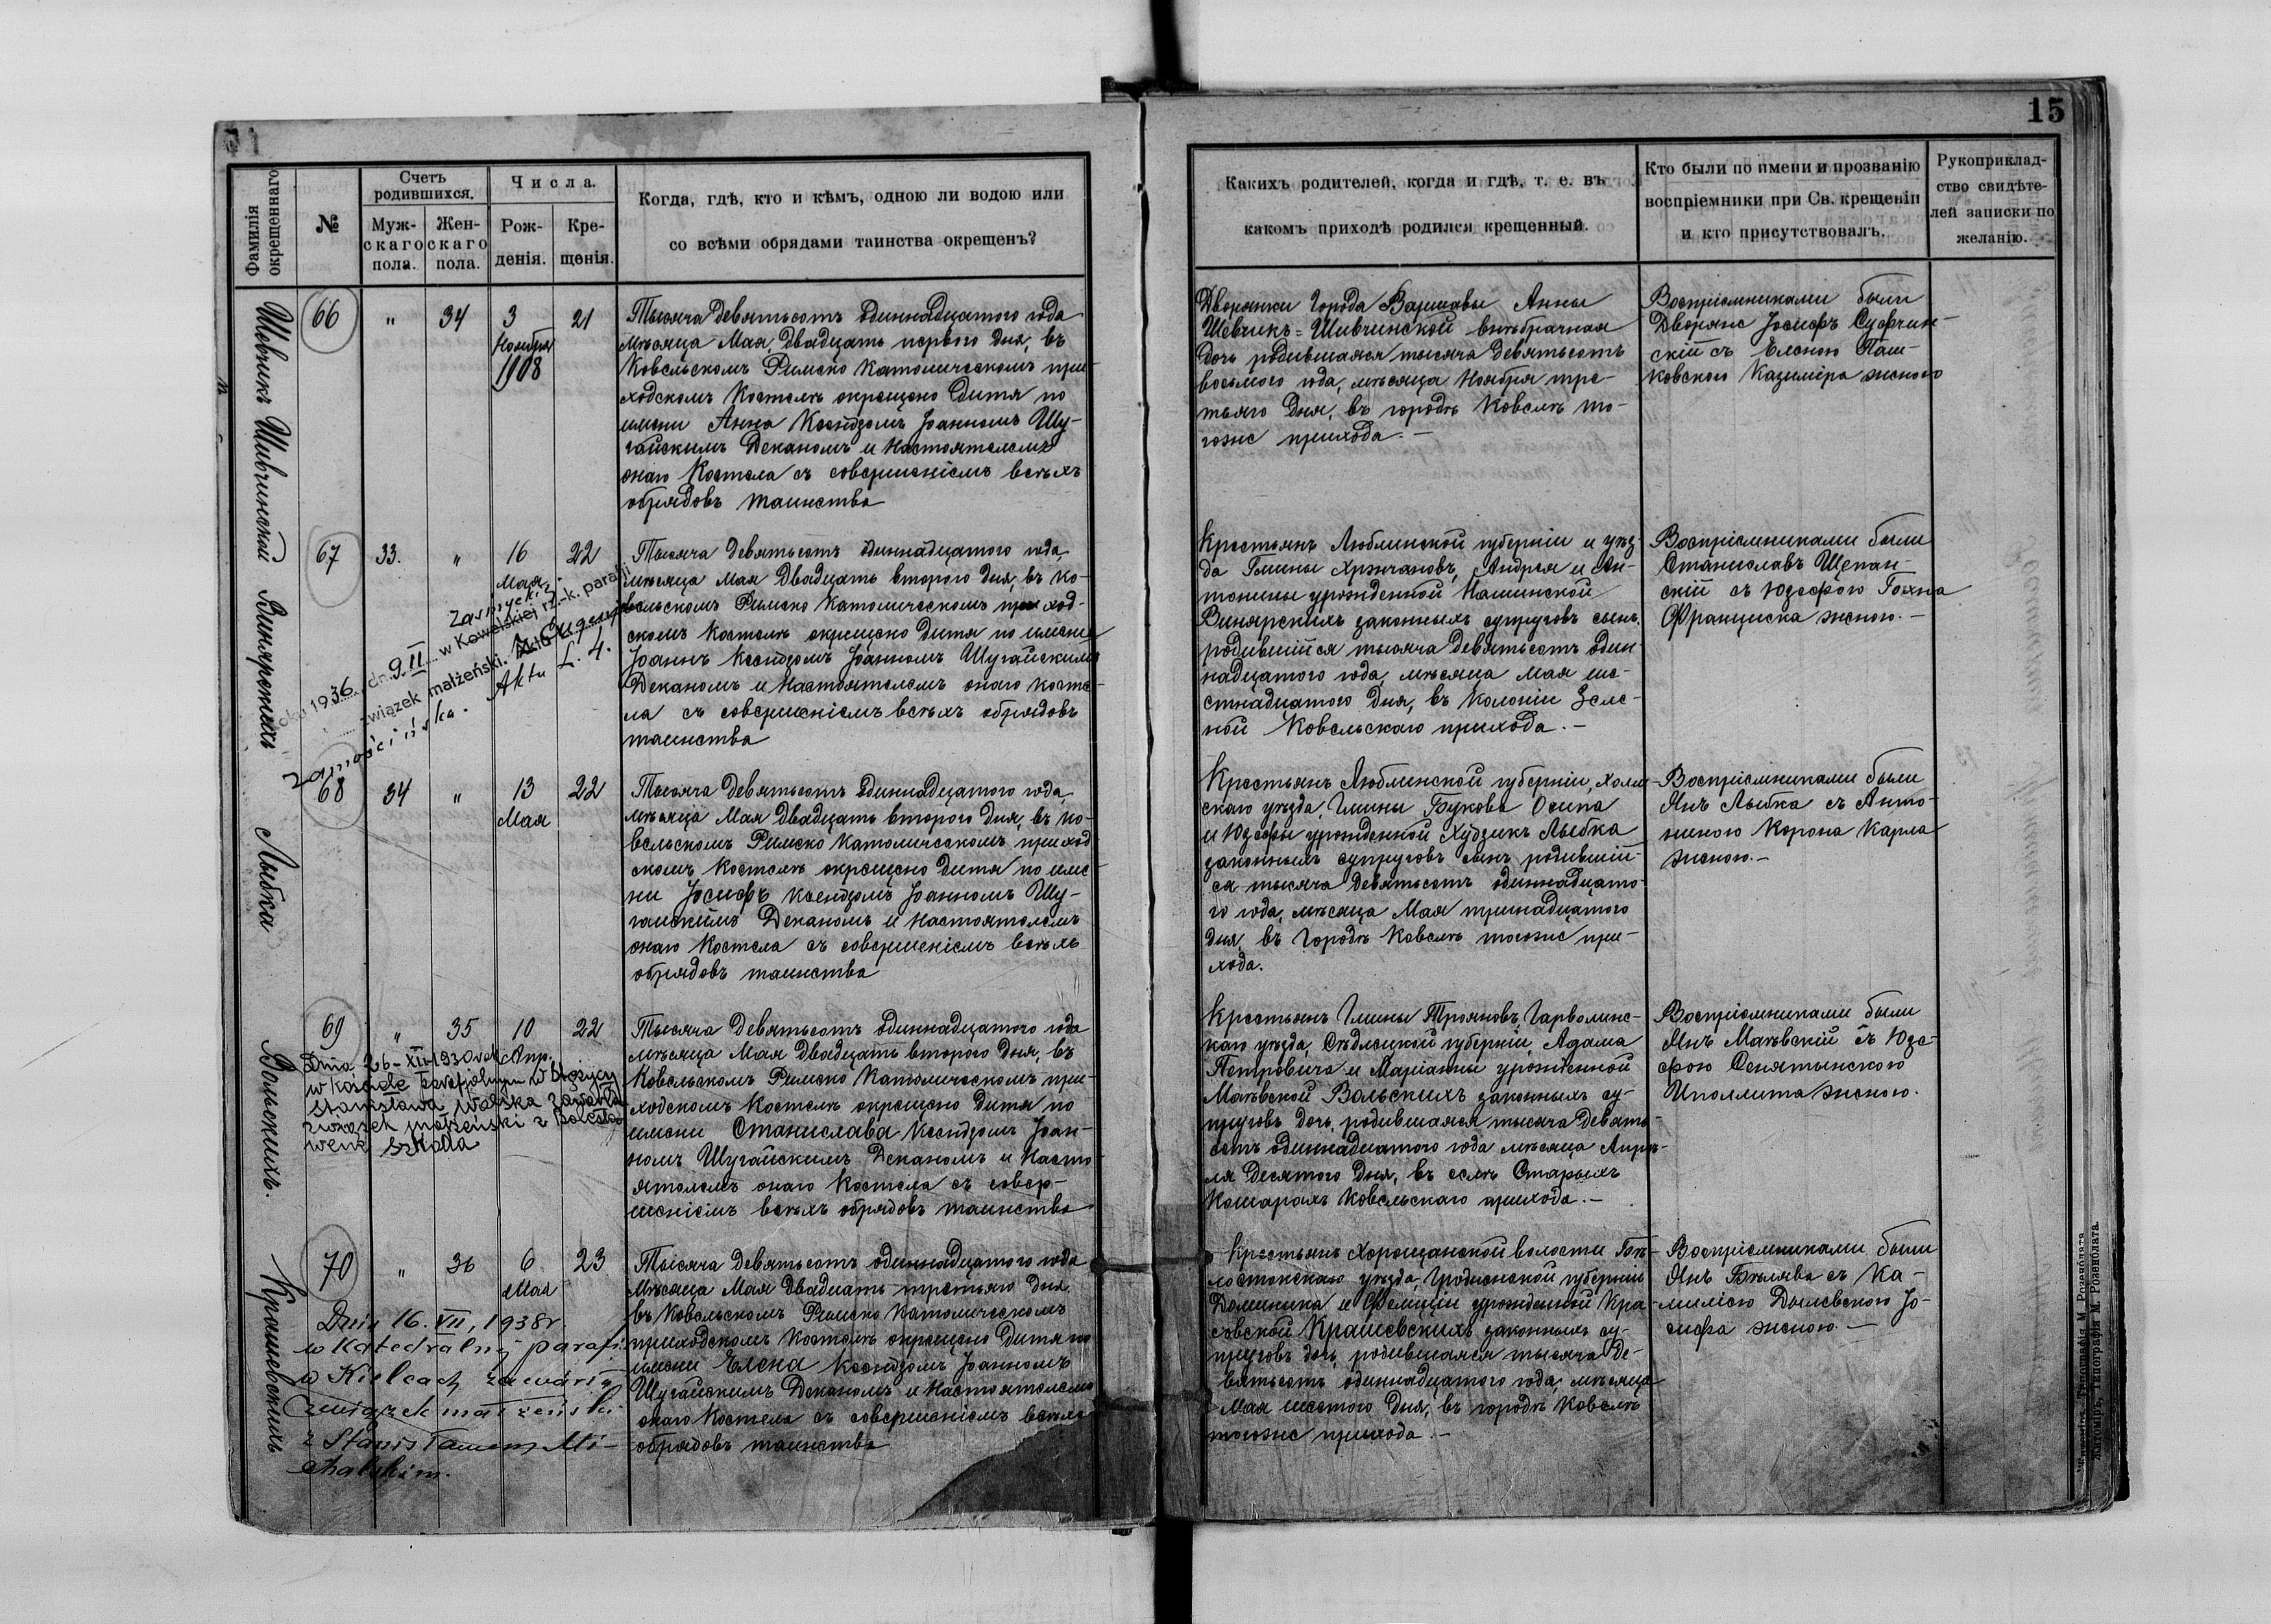 15
Фамилія окрещеннаго
№
Счетъ родившихся.
Муж-скаго пола.
Жен-скаго пола.
Числа.
Рож-денія.
Кре-щенія.
Когда, гдѣ, кто и кѣмъ, одною ли водою или
со всѣми обрядами таинства окрещенъ?
Какихъ родителей, когда и гдѣ, т. е. въ
какомъ приходѣ родился крещенный.
Кто были по имени и прозванію
воспріемники при Св. крещеніи
и кто присутствовалъ.
Рукоприклад-
ство свидѣте-
лей записки по
желанію.
Шевчикъ Шивчинской
66 " 34 3 21
Ноября
1908
Тысяча девятьсотъ одиннадцатого года
мѣсяца Мая, двадцать перваго дня, въ
Ковельскомъ Римско Католическомъ при-
ходскомъ Костелѣ окрещено дитя по
имени Анна Ксендзомъ Іоанномъ Шу-
гайскимъ Деканомъ и Настоятелемъ
онаго Костела съ совершеніемъ всѣхъ
обрядовъ таинства
Дворянки Города Варшавы Анны
Шевчикъ=Шивчинской внѣбрачная
дочь родившаяся тысяча девятьсотъ
восьмого года, мѣсяца Ноября тре-
тьяго дня, въ городѣ Ковелѣ то-
гоже прихода. —
Воспріемниками были
Дворяне Іосифъ Суфчин-
скій съ Еленою Паш-
ковского Казиміра женою
Винярскихъ
67 33. " 16 22
Мая
Тысяча девятьсотъ одиннадцатого года,
мѣсяца Мая двадцать второго дня, въ Ко-
вельскомъ Римско Католическомъ приход-
скомъ Костелѣ окрещено дитя по имени
Іоаннъ Ксендзомъ Іоанномъ Шугайскимъ
Деканомъ и Настоятелемъ онаго косте-
ла съ совершеніемъ всѣхъ обрядовъ
таинства
roku 1936 dn. 9.II w Kowelskiej rz.-k. parafii
związek małżeński.
Zamościńska. Aktu L. 4.
Крестьянъ Люблинской губерніи и уѣз-
да Гмины Хржчановъ, Андрея и Ан-
тонины урожденной Машинской
Винярскихъ законныхъ супруговъ сынъ,
родившійся тысяча девятьсотъ один-
надцатого года, мѣсяца Мая ше-
стнадцатого дня, въ колоніи Зеле-
ной Ковельскаго прихода. —
Воспріемниками были
Станиславъ Щепан-
скій съ Юзефою
Франциска женою. —
Лыбка
68 34 " 13 22
Мая
Тысяча девятьсотъ одиннадцатого года,
мѣсяца Мая двадцать второго дня, въ Ко-
вельскомъ Римско Католическомъ приход
скомъ Костелѣ окрещено дитя по име-
ни Іосифъ ксендзомъ Іоанномъ Шу-
гайскимъ Деканомъ и Настоятелемъ
онаго Костела съ совершеніемъ всѣхъ
обрядовъ таинства
Крестьянъ Люблинской губерніи, Холм-
скаго уѣзда, Гмины Букова Осипа
и Юзефы урожденной Худзикъ Лыбка
законныхъ супруговъ сынъ родившій-
ся тысяча девятьсотъ одиннадцато-
го года, мѣсяца Мая тринадцатого
дня, въ Городѣ Ковелѣ тогоже при-
хода.
Воспріемниками были
Янъ Лыбка съ Анто-
ниною Корона Карла
женою. —
Вольскихъ.
69 " 35 10 22
Апр.
Тысяча девятьсотъ одиннадцатого года
мѣсяца Мая двадцать второго дня, въ
Ковельскомъ Римско Католическомъ при-
ходскомъ Костелѣ окрещено дитя по
имени Станислава Ксендзомъ Іоан-
номъ Шугайскимъ Деканомъ и Насто-
ятелемъ онаго Костела съ совер-
шеніемъ всѣхъ обрядовъ таинства
Dnia 26-XII-1930 rok
w kościele parafjalnym w
Stanisława Wolska zawarła
związek małżeński z
Szkałła
Крестьянъ Гмины Трояновъ, Гарволинс-
каго уѣзда, Сѣдлецкой губерніи, Адама
Петровича и Маріанны урожденной
Маѣвской Вольскихъ законныхъ су-
пруговъ дочь, родившаяся тысяча девять-
сотъ одиннадцатого года мѣсяца Апрѣ-
ля десятого дня, въ селѣ Старыхъ
Кошарахъ Ковельскаго прихода. —
Воспріемниками были
Янъ Маѣвскій съ Юзе-
фою Сенятынского
Ипполита женою.
Крашевскихъ
70 " 36 6 23
Мая
Тысяча девятьсотъ одиннадцатого года
Мѣсяца Мая двадцать третьяго дня
въ Ковельскомъ Римско Католическомъ
приходскомъ Костелѣ окрещено дитя по
имени Елена Ксендзомъ Іоанномъ
Шугайскимъ Деканомъ и Настоятелемъ
онаго Костела съ совершеніемъ всѣхъ
обрядовъ таинства
Dnia 16. VII, 1938 r.
w Katedralnej parafii
w Kielcach zawarła
związek małżeński
z Stanisławem Mi-
chalskim.
Крестьянъ Хорощанской волости Бѣ-
лостокскаго уѣзда, Гродненской губерніи
Доминика и Фелиціи урожденной Кра-
совской Крашевскихъ законныхъ су-
пруговъ дочь, родившаяся тысяча де-
вятьсотъ одиннадцатого года, мѣсяца
Мая шестого дня, въ городѣ Ковелѣ
тогоже прихода. —
Воспріемниками были
Янъ Бѣлява съ Ка-
милією Дылевского Іо-
сифа женою. —
Житомiръ, Типографія М. Розенблата.